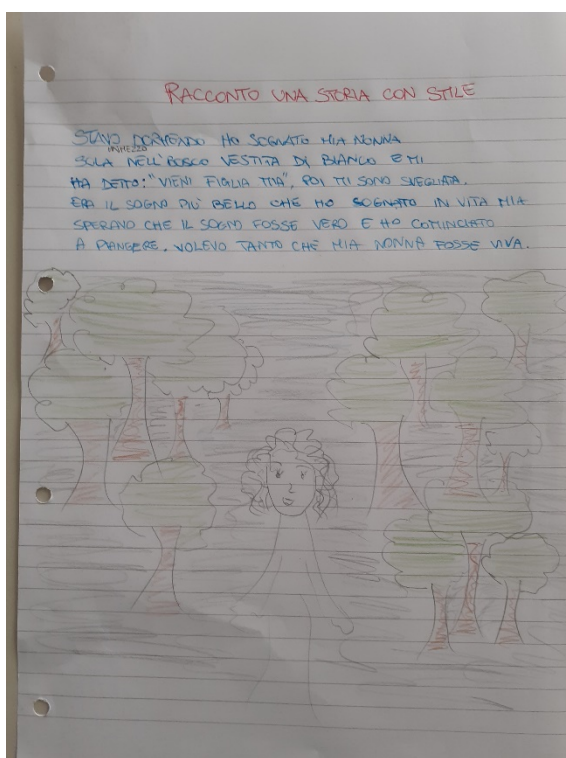 RACCONTO UNA STORIA CON STILE
STAVO DORMENDO HO SOGNATO MIA NONNA
IN MEZZO
SOLA NELL'BOSCO VESTITA DI BIANCO E MI
HA DETTO: "VIENI FIGLIA MIA", POI MI SONO SVEGLIATA.
ERA IL SOGNO PIÙ BELLO CHE HO SOGNATO IN VITA MIA
SPERAVO CHE IL SOGNO FOSSE VERO E HO COMINCIATO
A PIANGERE. VOLEVO TANTO CHE MIA NONNA FOSSE VIVA.